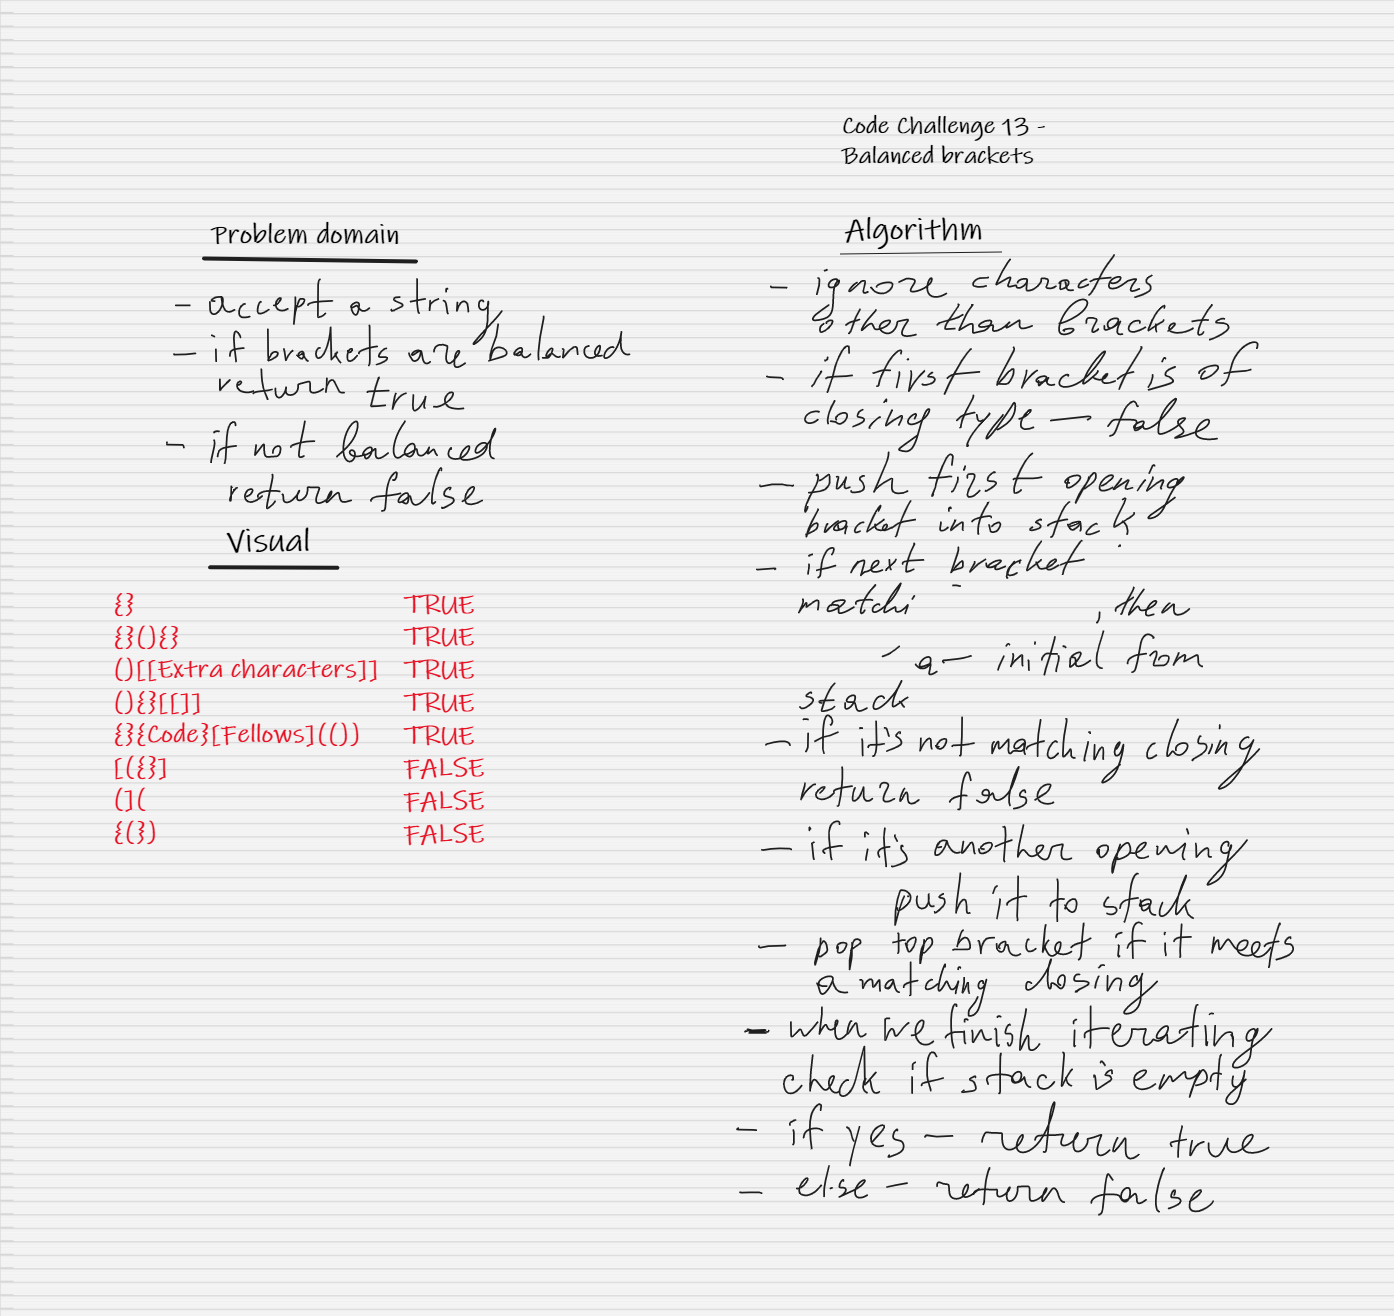 Code Challenge 13 -
Balanced brackets
Problem domain
- accept a string
- if brackets are balanced
return true
- if not balanced
return false
Visual
{} TRUE
{}(){} TRUE
()[[Extra characters]] TRUE
(){}[[]] TRUE
{}{Code}[Fellows](()) TRUE
[({}] FALSE
(]( FALSE
{(}) FALSE
Algorithm
- ignore characters
other than brackets
- if first bracket is of
closing type - false
- push first opening
bracket into stack
- if next bracket
matchi , then
initial from
stack
- if it's not matching closing
return false
- if it's another opening
push it to stack
- pop top bracket if it meets
a matching closing
- when we finish iterating
check if stack is empty
- if yes - return true
- else - return false